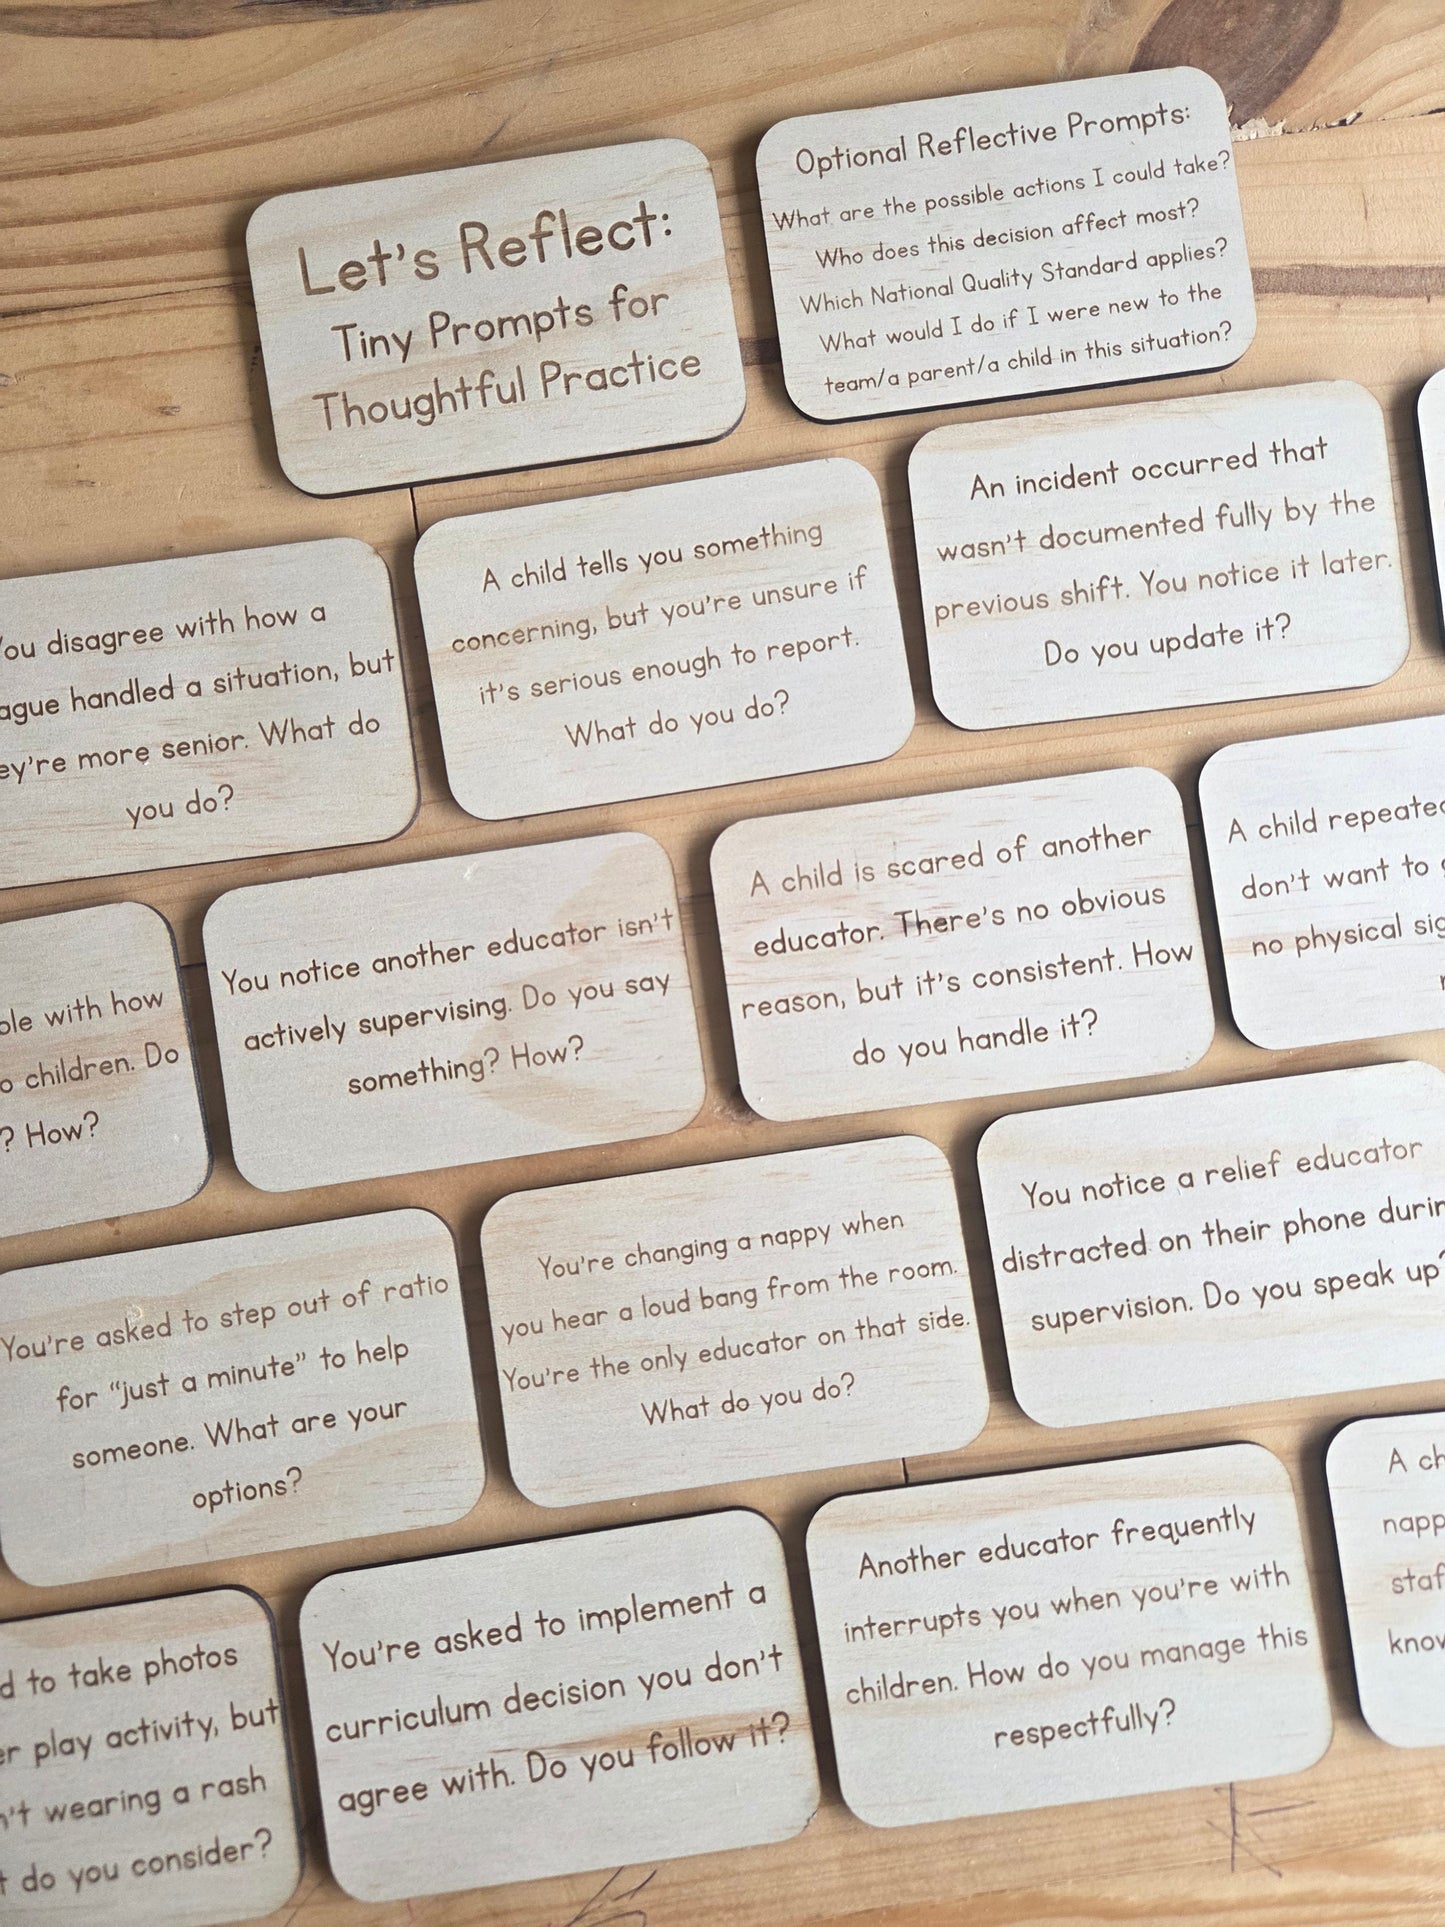 Let's Reflect:
Tiny Prompts for
Thoughtful Practice
Optional Reflective Prompts:
What are the possible actions I could take?
Who does this decision affect most?
Which National Quality Standard applies?
What would I do if I were new to the
team/a parent/a child in this situation?
You disagree with how a
ague handled a situation, but
ey're more senior. What do
you do?
A child tells you something
concerning, but you're unsure if
it's serious enough to report.
What do you do?
An incident occurred that
wasn't documented fully by the
previous shift. You notice it later.
Do you update it?
ble with how
o children. Do
? How?
You notice another educator isn't
actively supervising. Do you say
something? How?
A child is scared of another
educator. There's no obvious
reason, but it's consistent. How
do you handle it?
A child repeated
don't want to
no physical sig
You're asked to step out of ratio
for "just a minute" to help
someone. What are your
options?
You're changing a nappy when
you hear a loud bang from the room.
You're the only educator on that side.
What do you do?
You notice a relief educator
distracted on their phone durin
supervision. Do you speak up?
d to take photos
er play activity, but
n't wearing a rash
t do you consider?
You're asked to implement a
curriculum decision you don't
agree with. Do you follow it?
Another educator frequently
interrupts you when you're with
children. How do you manage this
respectfully?
A ch
napp
staf
know